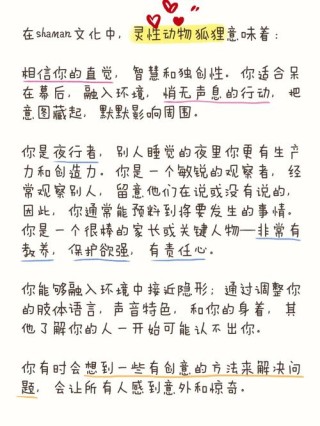 在shaman文化中，灵性动物狐狸意味着：
相信你的直觉，智慧和独创性。你适合呆
在幕后，融入环境，悄无声息的行动，把
意图藏起，默默影响周围。
你是夜行者，别人睡觉的夜里你更有生产
力和创造力。你是一个敏锐的观察者，经
常观察别人，留意他们在说或没有说的，
因此，你通常能预料到将要发生的事情。
你是一个很棒的家长或关键人物—非常有
教养，保护欲强，有责任心。
你能够融入环境中接近隐形；通过调整你
的肢体语言，声音特色，和你的身着，其
他了解你的人一开始可能认不出你。
你有时会想到一些有创意的方法来解决问
题，会让所有人感到意外和惊奇。